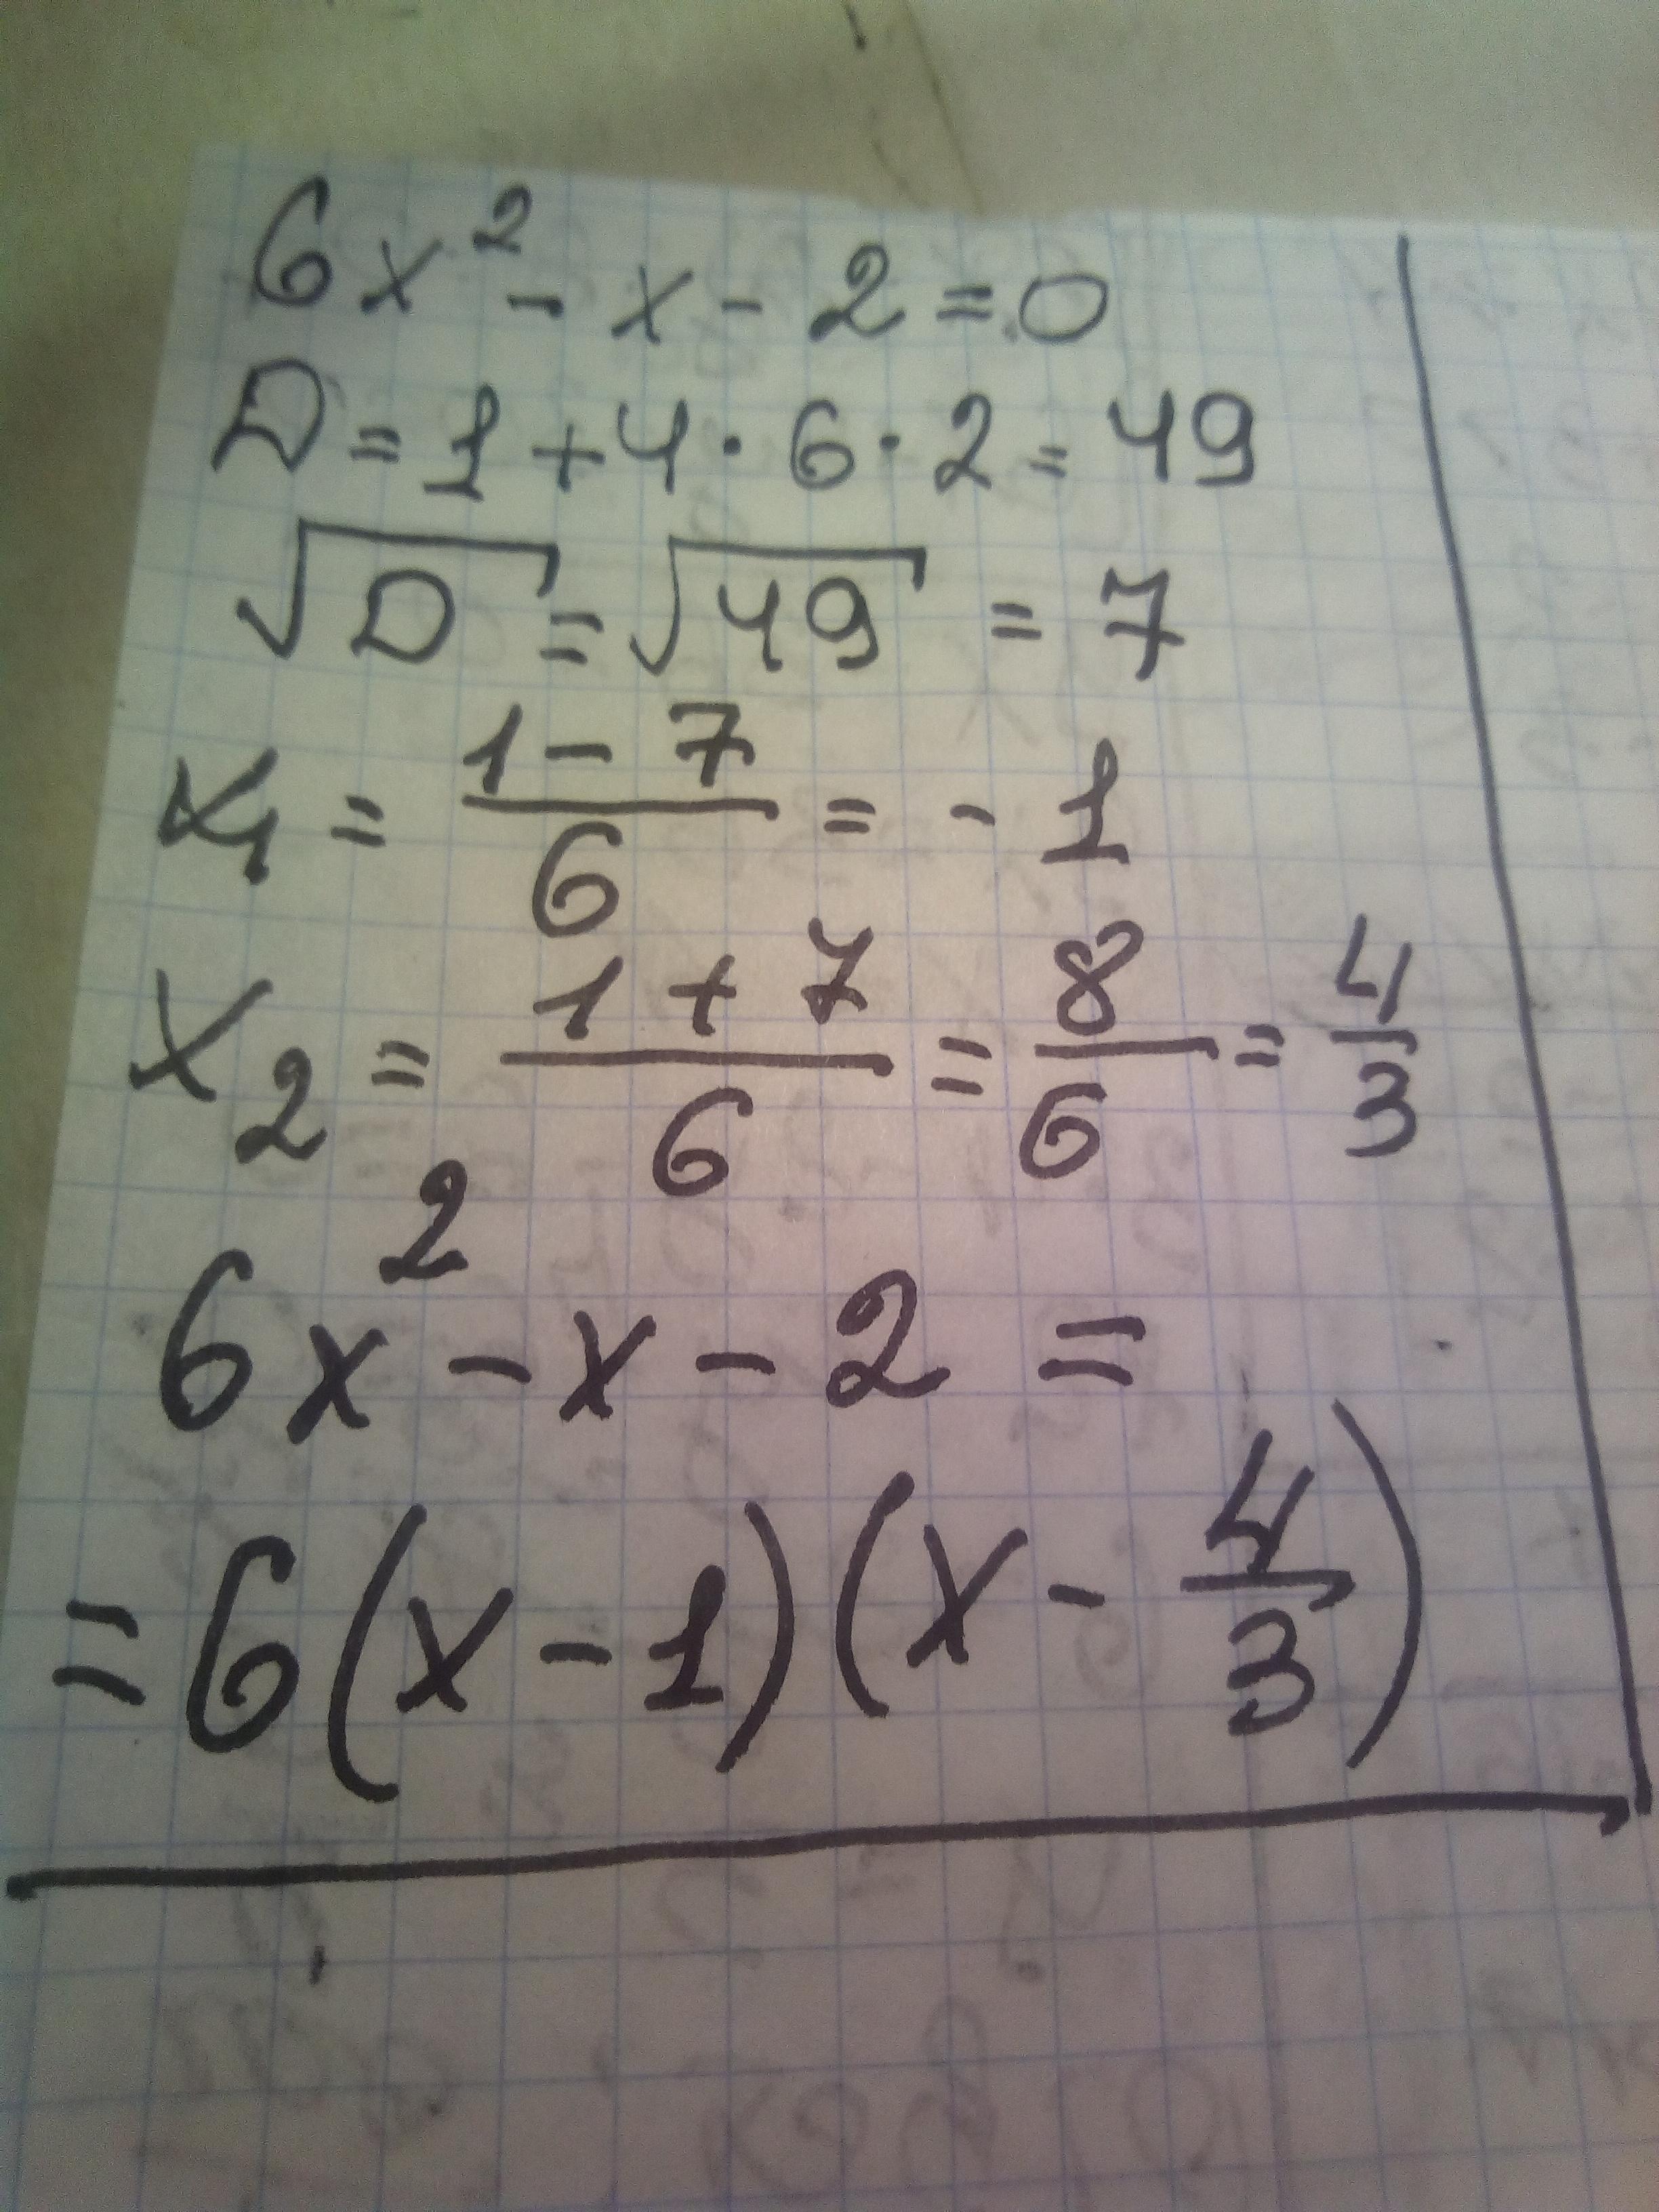 6x² - x - 2 = 0
D = 1 + 4 · 6 · 2 = 49
√D = √49 = 7
x₁ = (1 - 7)/6 = - 1
x₂ = (1 + 7)/6 = 8/6 = 4/3
6x² - x - 2 =
= 6(x - 1)(x - 4/3)